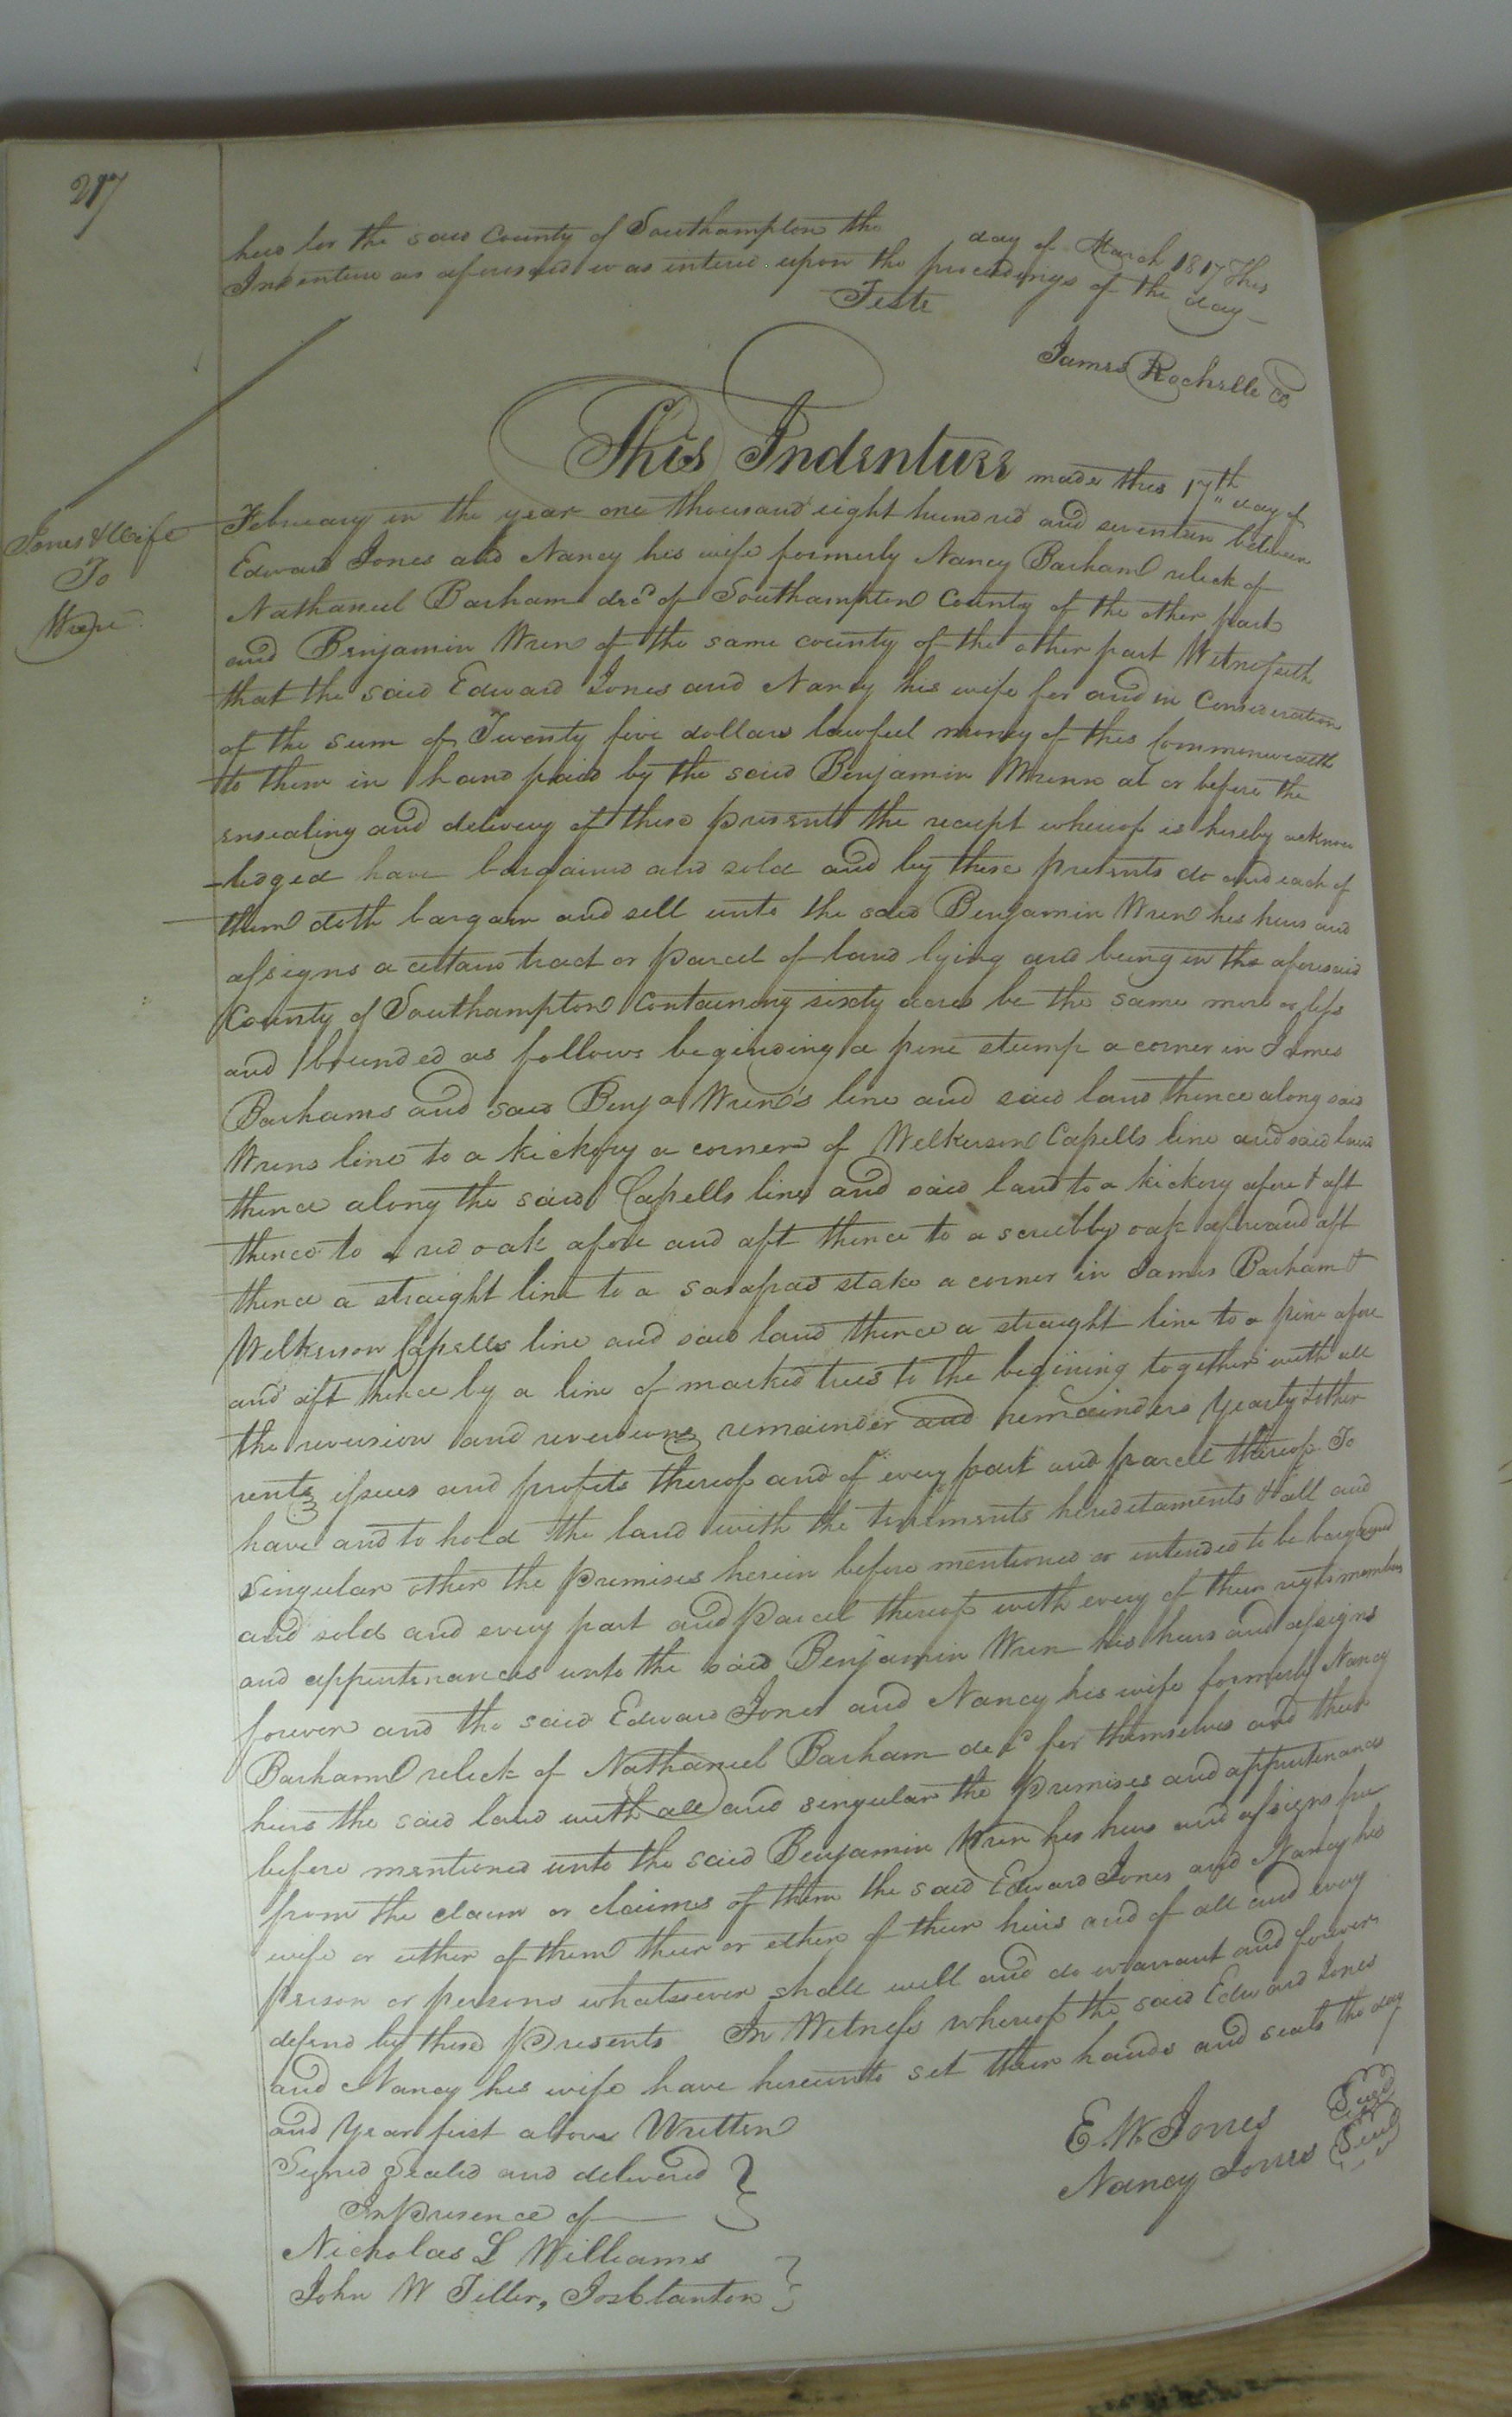 217
held for the said County of Southampton the day of March 1817 This
Indenture as aforesaid was entered upon the proceedings of the day
Teste
James Rochelle
This Indenture made this 17th day of
February in the year one thousand eight hundred and seventeen between
Jones & Wife
To
Edward Jones and Nancy his wife formerly Nancy Barham relick of
Nathaniel Barham decd of Southampton County of the other part
and Benjamin Wren of the same county of the other part Witnesseth
that the said Edward Jones and Nancy his wife for and in Consideration
of the sum of Twenty five dollars lawful money of this Commonwealth
to them in hand paid by the said Benjamin Wrenn at or before the
ensealing and delivery of these presents the receipt whereof is hereby acknow
-ledged have bargained and sold and by these presents do and each of
them doth bargain and sell unto the said Benjamin Wren his heirs and
assigns a certain tract or parcel of land lying and being in the aforesaid
County of Southampton Containing sixty acres be the same more or less
and bounded as follows beginding a pine stump a corner in James
Barhams and said Benja Wren's line and said land thence along said
Wrens line to a hickory a corner of Welkerson Capells line and said land
thence along the said Capells line and said land to a hickory afore & aft
thence to a red oak afore and aft thence to a scrubby oak afore and aft
thence a straight line to a stake a corner in James Barham &
Welkerson Capells line and said land thence a straight line to a pine afore
and aft thence by a line of marked trees to the begining together with all
the reversion and reversions remainder and remainders Yearly & other
rents issues and profits thereof and of every part and parcel thereof To
have and to hold the land with the tenements hereditaments & all and
Singular other the Premises herein before mentioned or intended to be bargained
and sold and every part and Parcel thereof with every of their rights members
and appurtenances unto the said Benjamin Wren his heirs and assigns
forever and the said Edward Jones and Nancy his wife formerly Nancy
Barham relick of Nathaniel Barham decd for themselves and their
heirs the said land with all and singular the Premises and appurtenances
before mentioned unto the said Benjamin Wren his heirs and assigns free
from the claim or claims of them the said Edward Jones and Nancy his
wife or either of them their or either of their heirs and of all and every
person or persons whatsoever shall will and do warrant and forever
defend by these Presents In Witness whereof the said Edward Jones
and Nancy his wife have hereunto set their hands and seals the day
and Year first above Written
E. W. Jones Seal
Nancy Jones Seal
Signed Sealed and delivered
In Presence of
Nicholas L Williams
John W Teller, Jos Clanton